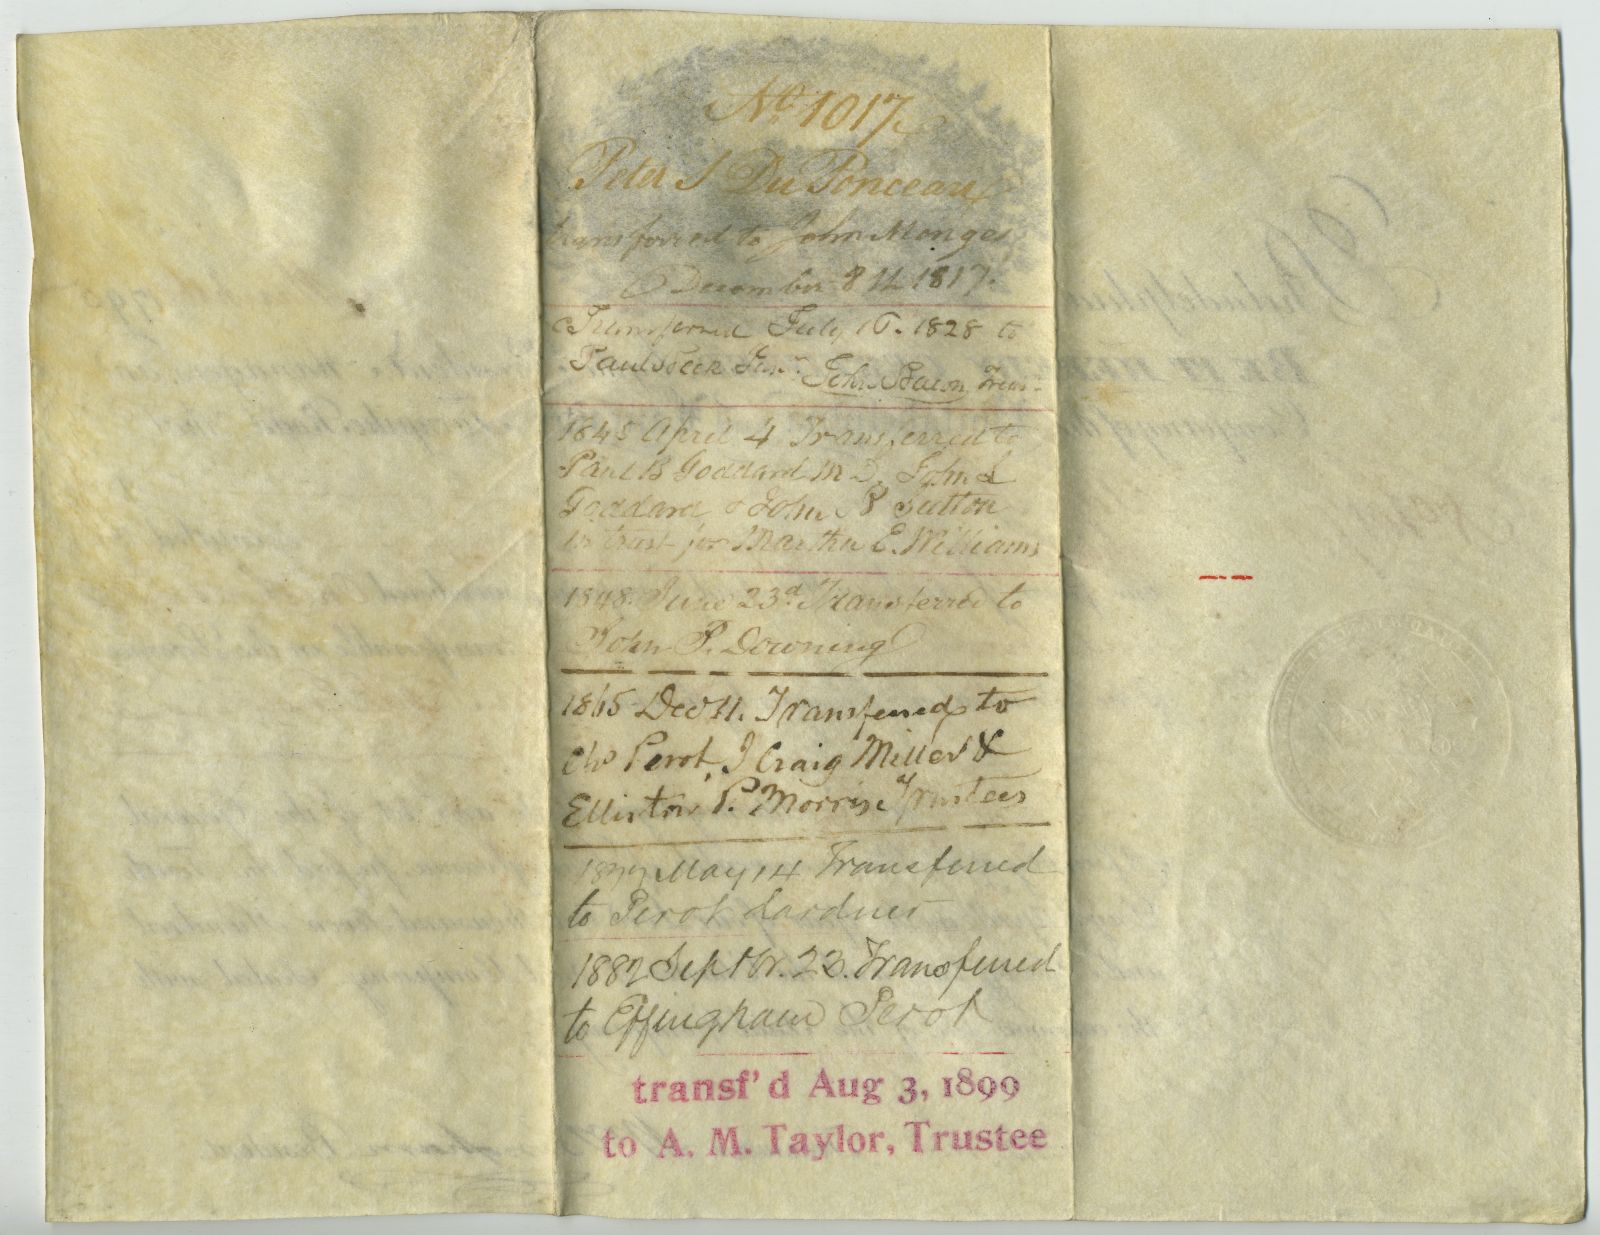 No 1017
Peter S Du Ponceau
transferred to John Monges
December 8th 1817.
Transferred July 16. 1828 to
Paul Beck Junr. John Bacon Trus
1845 April 4 Transferred to
Paul B Goddard M D. John L
Goddard & John R Sutton
in trust for Martha E. Williams
1848. June 23d Transferred to
John P. Downing
1865 Dec 11. Transferred to
Chs Perot, J Craig Miller &
Elliston P. Morris Trustees
1877 May 14 Transferred
to Perot Lardner
1882 Septbr. 23. Transferred
to Effingham Perot
transf'd Aug 3, 1899
to A. M. Taylor, Trustee